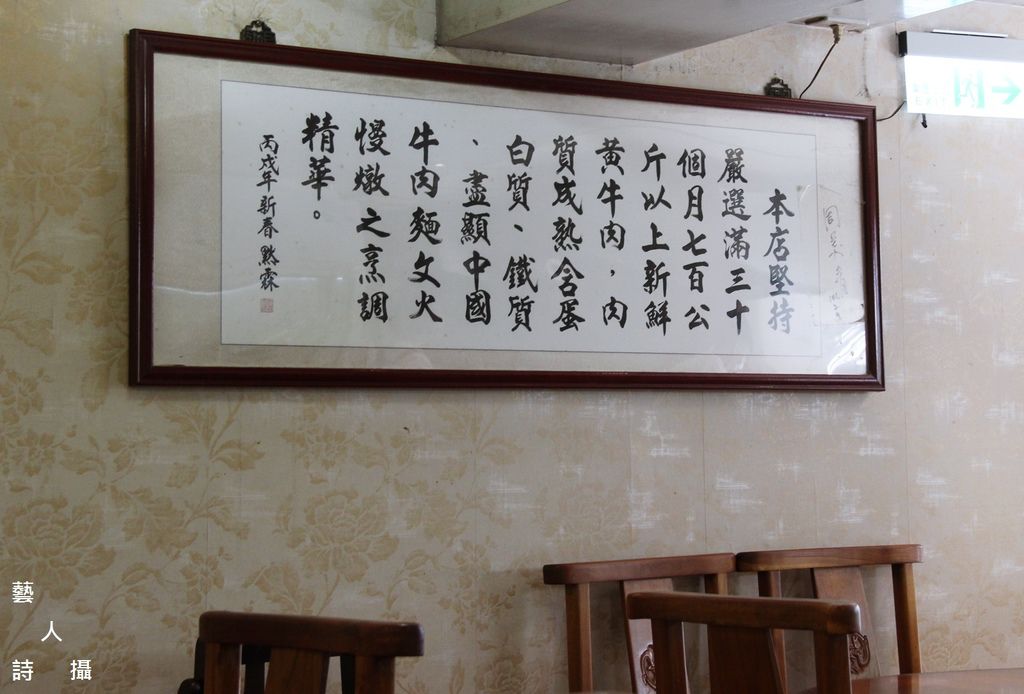 本店堅持
嚴選滿三十
個月七百公
斤以上新鮮
黃牛肉，肉
質成熟含蛋
白質、鐵質
、盡顯中國
牛肉麵文火
慢燉之烹調
精華。
丙戌年新春 黙霖
EXIT
藝
人
詩 攝